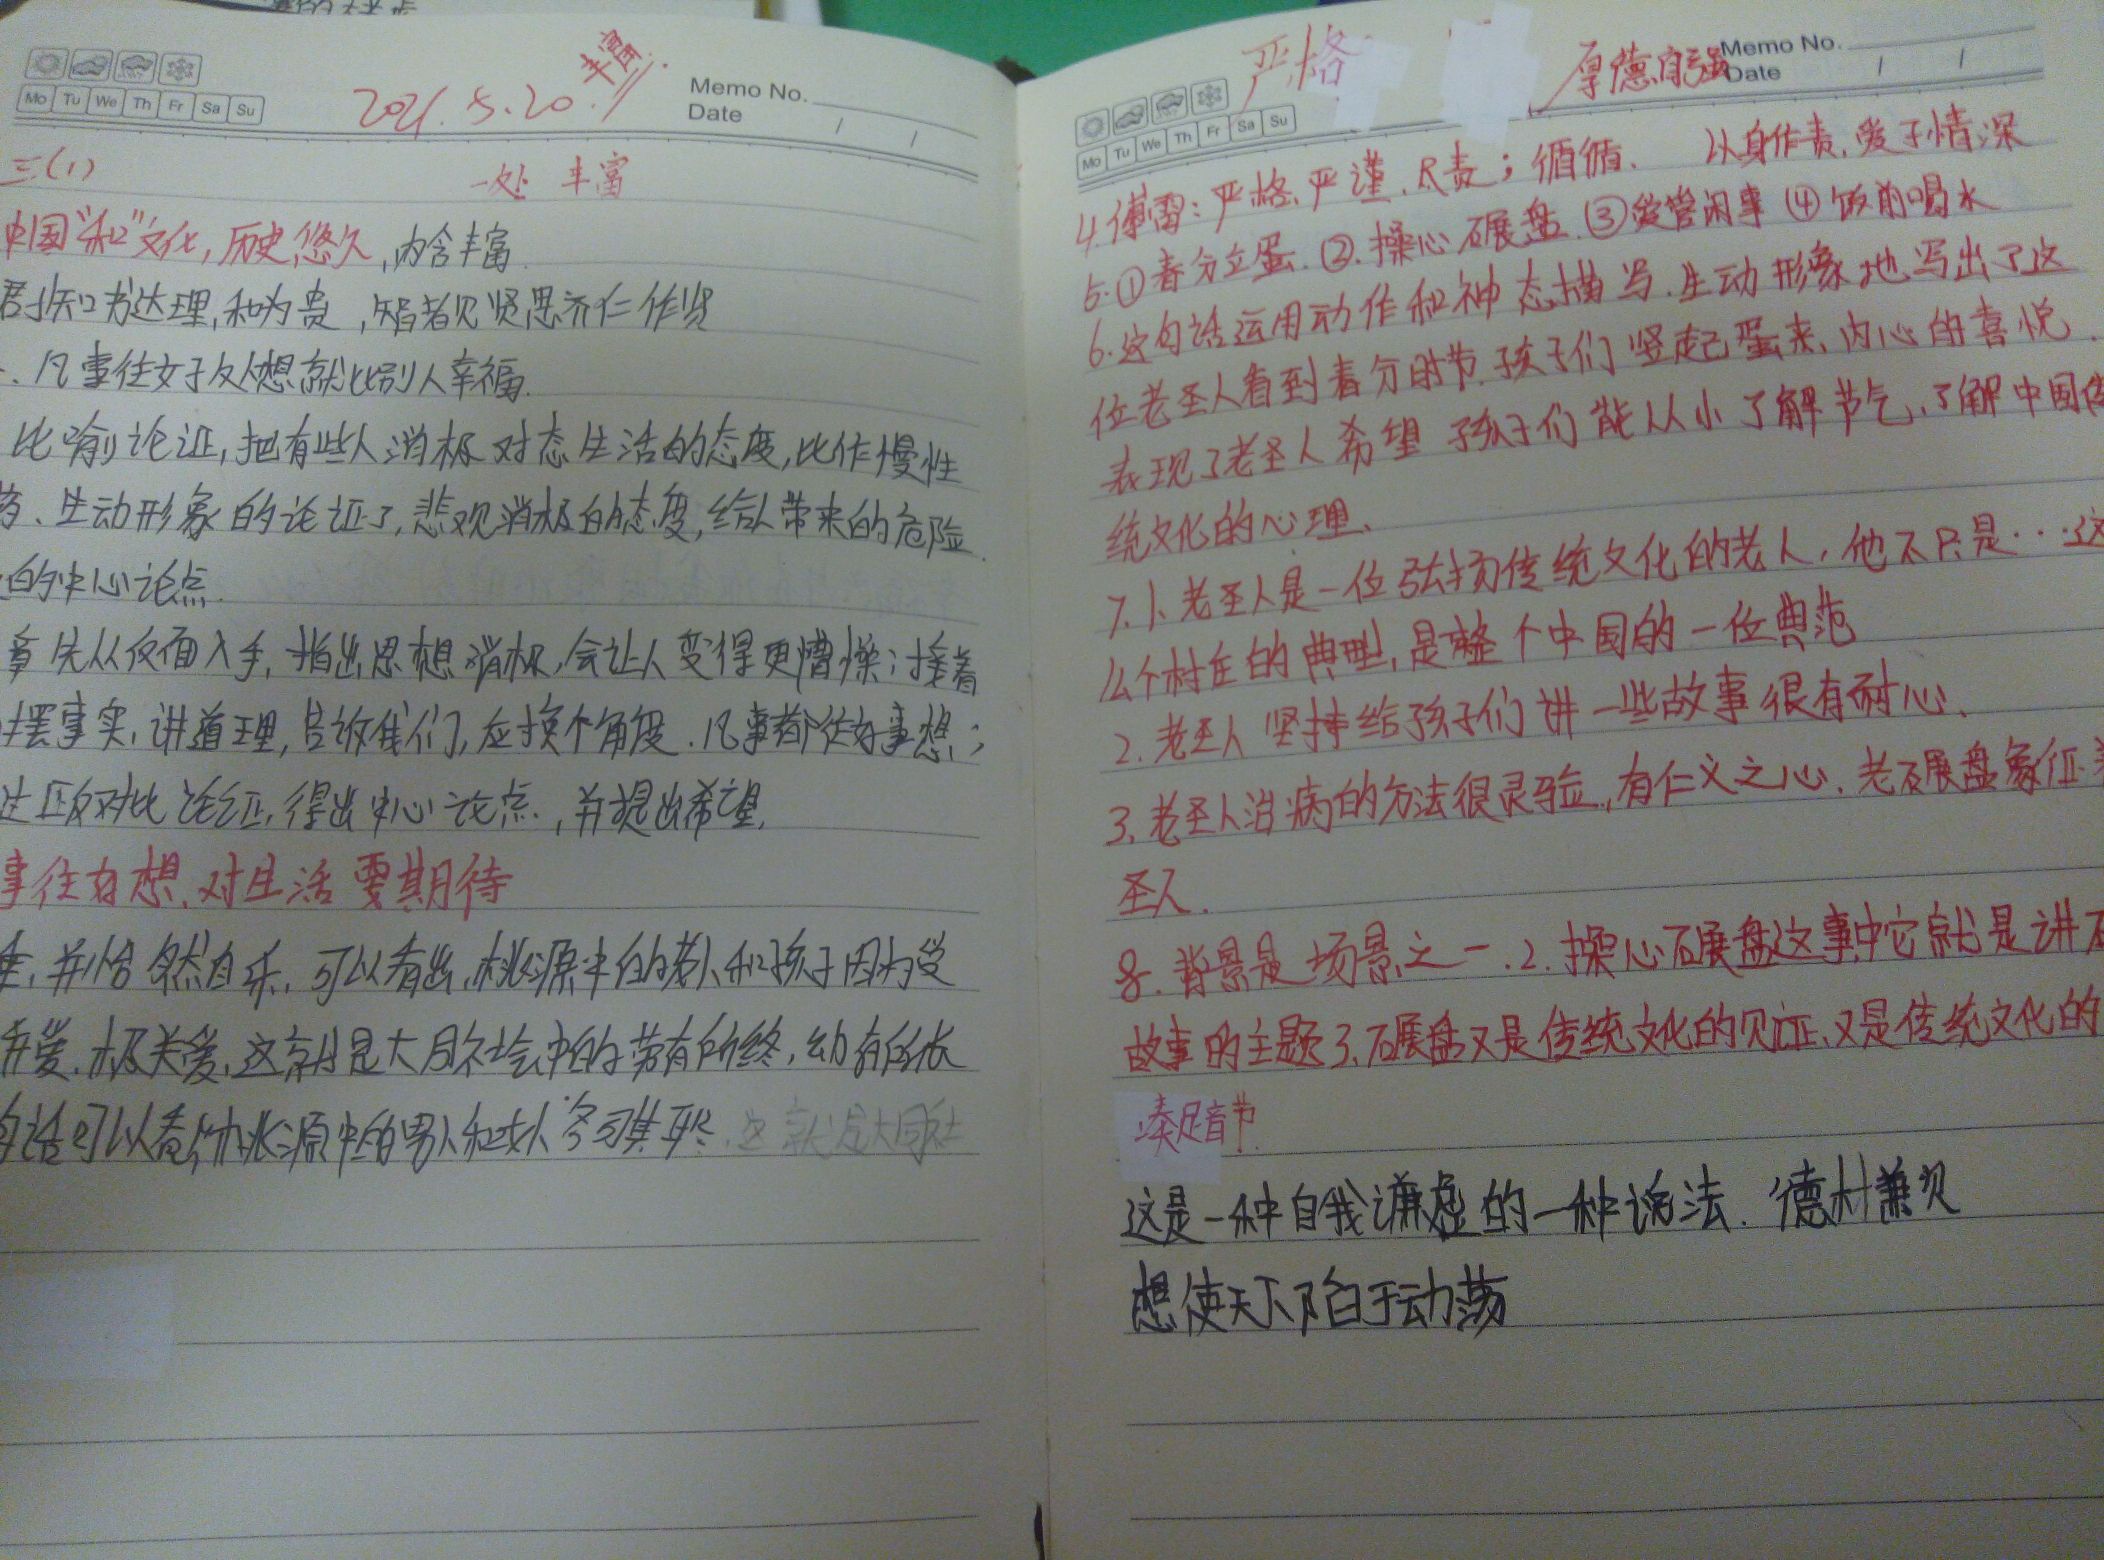 2021.5.20.
丰富
Memo No.
Date
Mo Tu We Th Fr Sa Su
三(1)
一处 丰富
中国"和"文化,历史悠久,内含丰富.
知书达理,和为贵,见贤思齐
凡事往好处想就比别人幸福.
比喻论证,把有些人消极对态生活的态度,比作慢性
生动形象的论证了,悲观消极的态度,给人带来的危险.
的中心论点.
章先从反面入手,指出思想消极,会让人变得更糟糕;接着
摆事实,讲道理,告诉我们,应换个角度.凡事都往好事想;
正反对比论证,得出中心论点.,并提出希望.
事往好想,对生活要期待
并怡然自乐.可以看出,桃源中的老人和孩子因为受
关爱.这就是大同社会中的老有所终,幼有所长
的话可以看出桃源中的男人和女人各司其职.这就是大同社
严格
厚德自强
Memo No.
Date
Mo Tu We Th Fr Sa Su
4.傅雷:严格,严谨,尽责;循循、 以身作责,爱子情深
5.①春分立蛋.②.操心石碾盘.③爱管闲事④饭前喝水
6.这句话运用动作和神态描写.生动形象地写出了这
位老圣人看到春分时节,孩子们竖起蛋来,内心的喜悦.
表现了老圣人希望孩子们能从小了解节气,了解中国传
统文化的心理、
7.1、老圣人是一位弘扬传统文化的老人,他不只是…这
么个村庄的典型,是整个中国的一位典范
2.老圣人坚持给孩子们讲一些故事很有耐心.
3.老圣人治病的方法很灵验,有仁义之心.老石碾盘象征老
圣人.
8.背景是场景之一.2.操心石碾盘这事中它就是讲石
故事的主题3.石碾盘又是传统文化的见证.又是传统文化的
凑足音节.
这是一种自我谦虚的一种说法. 德才兼贝
想使天下陷于动荡